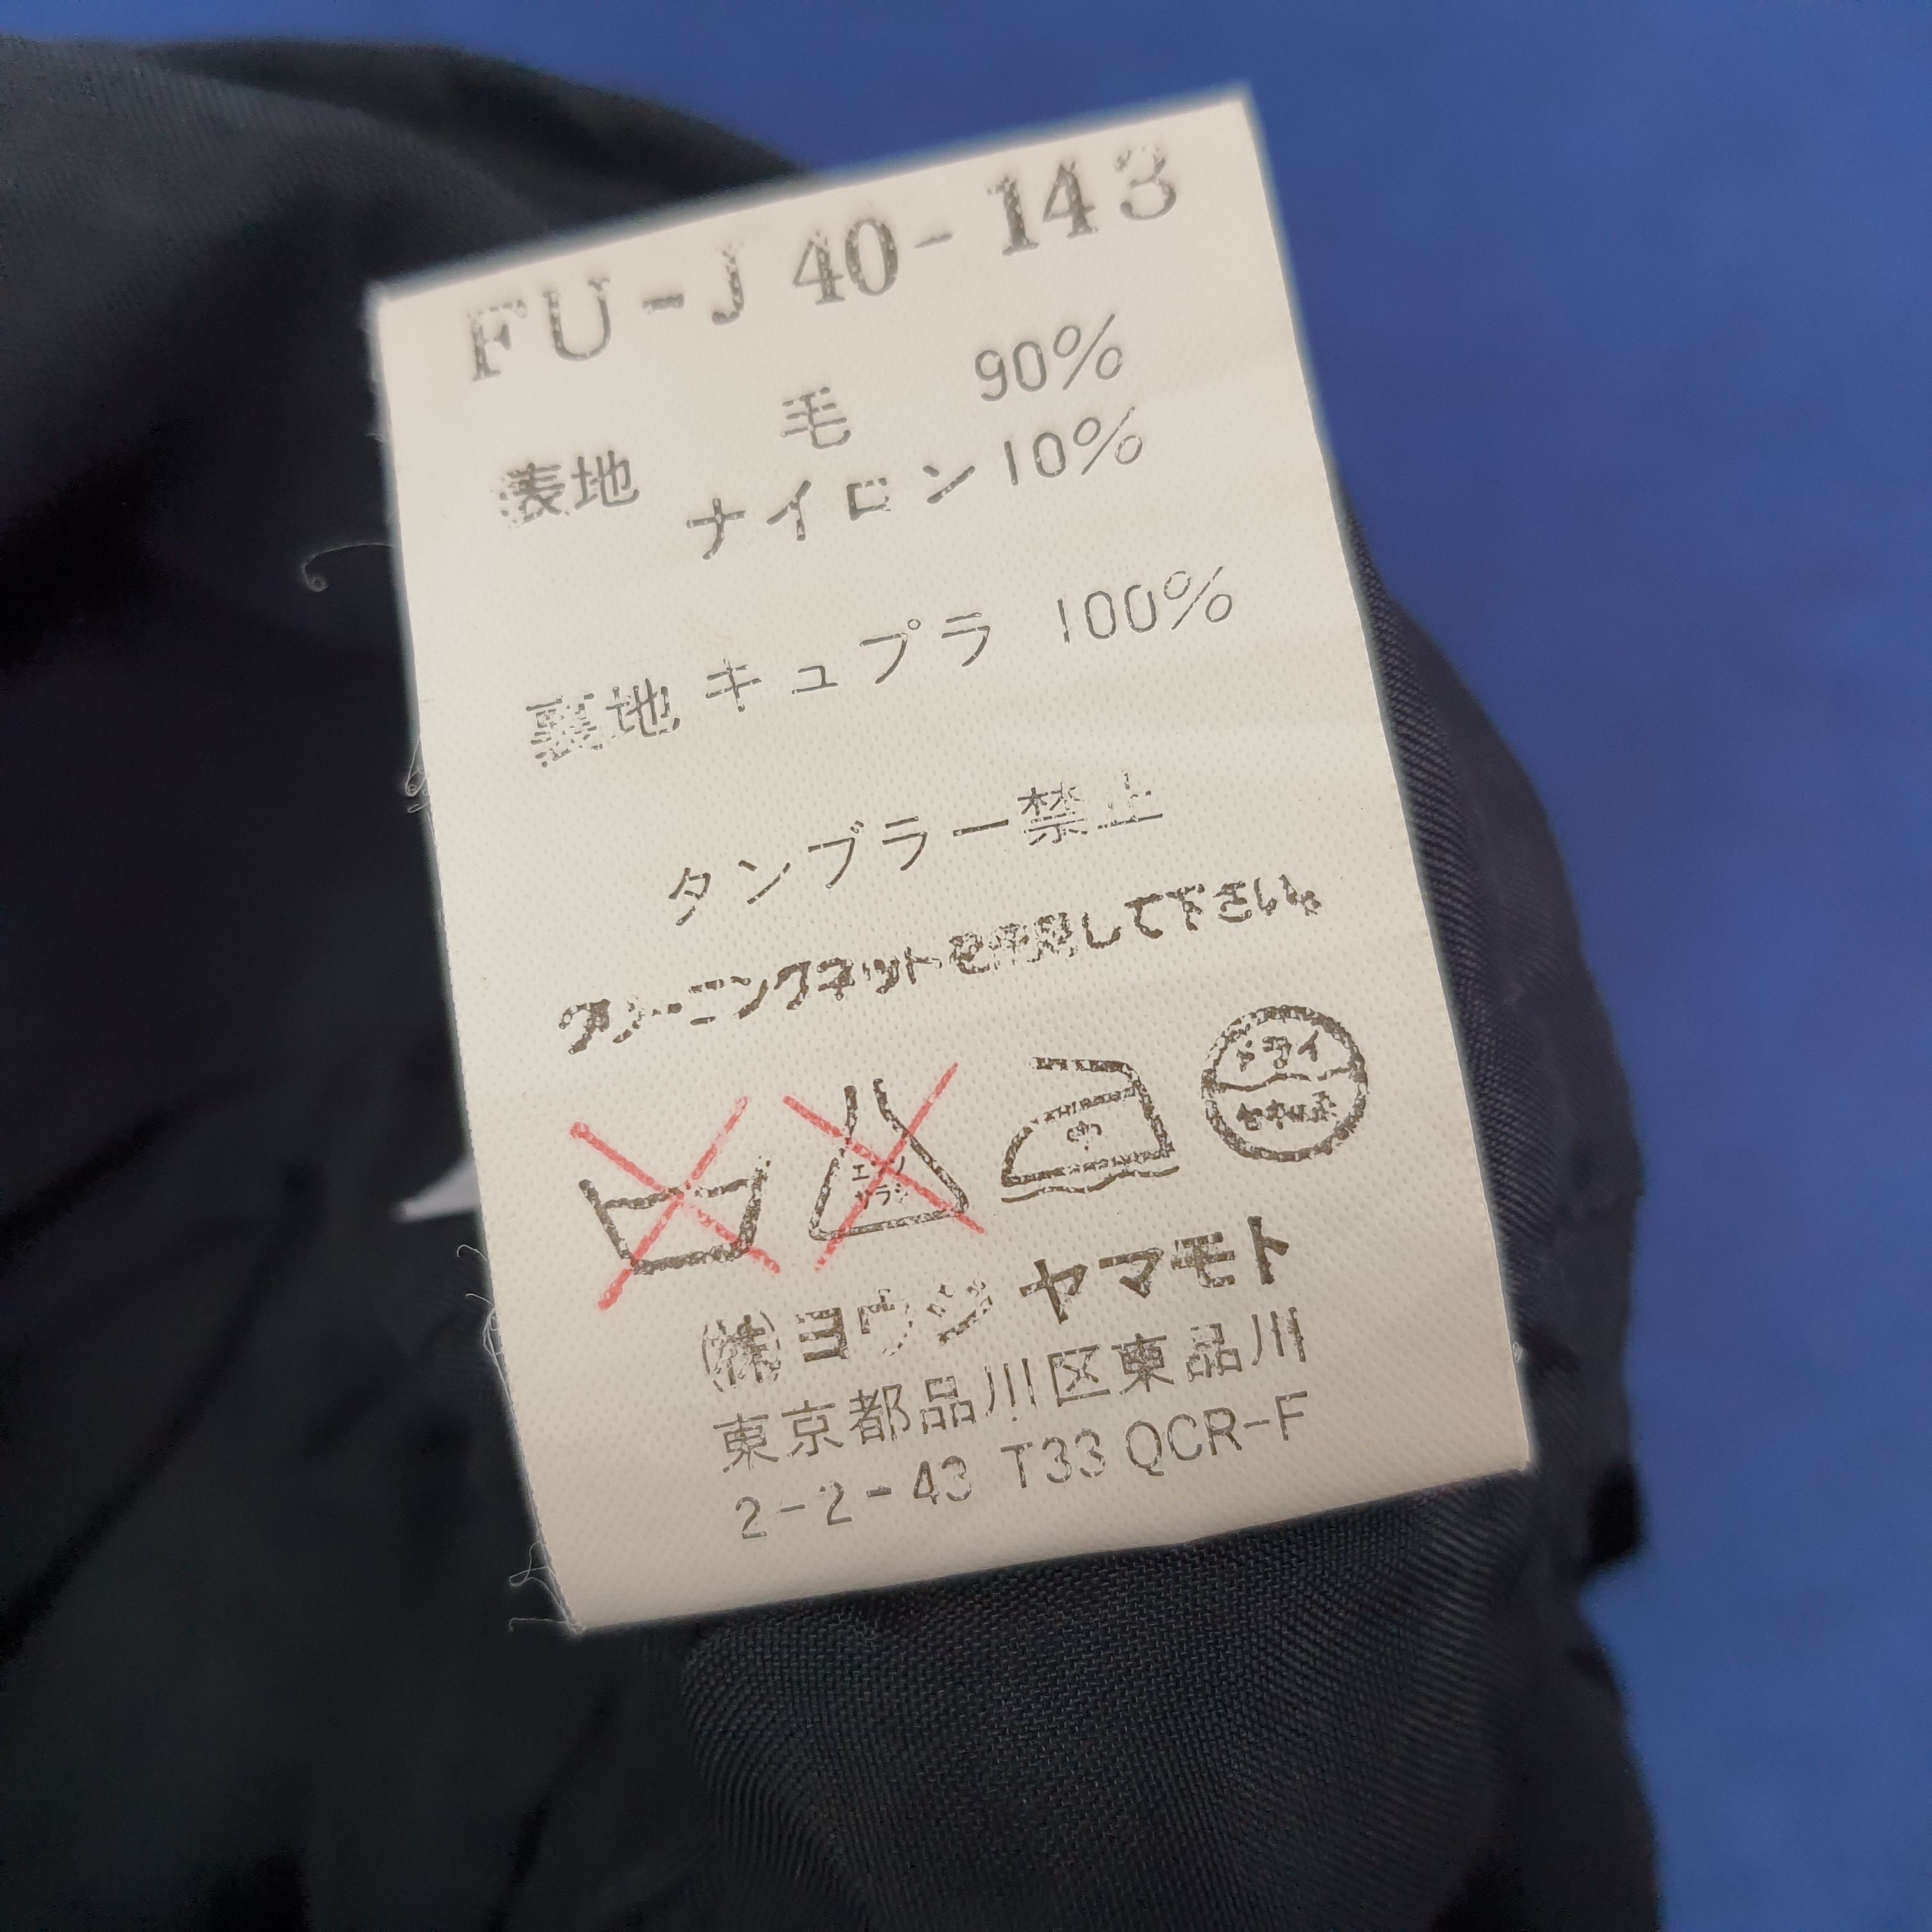 FU-J 40-143
毛 90%
表地
ナイロン 10%
裏地 キュプラ 100%
タンブラー禁止
クリーニングネットを使用して下さい。
エンソ
サラシ
中
ドライ
セキユ系
㈱ヨウジ ヤマモト
東京都品川区東品川
2-2-43 T33 QCR-F